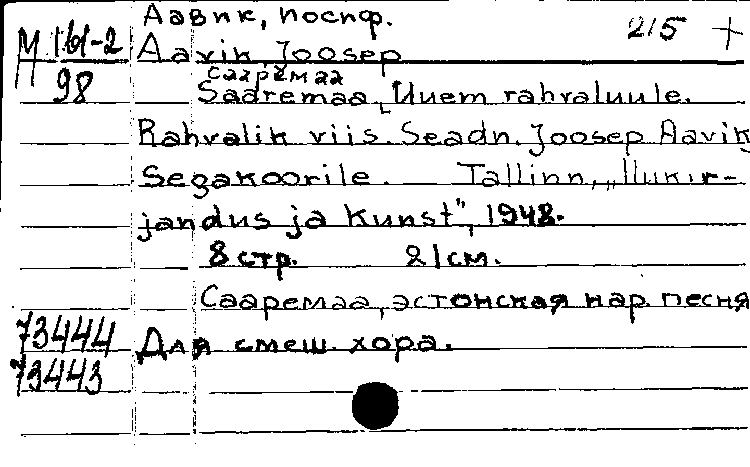 Аавик, Иосиф. 215 +
М 161-2
98
Aavik, Joosep
Сааремаа
Saaremaa, Uuem rahvaluule.
Rahvalik viis. Seadn. Joosep Aavik
Segakoorile. Tallinn, "Ilukir-
jandus ja Kunst", 1948.
8 стр. 21 см.
Сааремаа, эстонская нар. песня
Для смеш. хора.
73444
73443